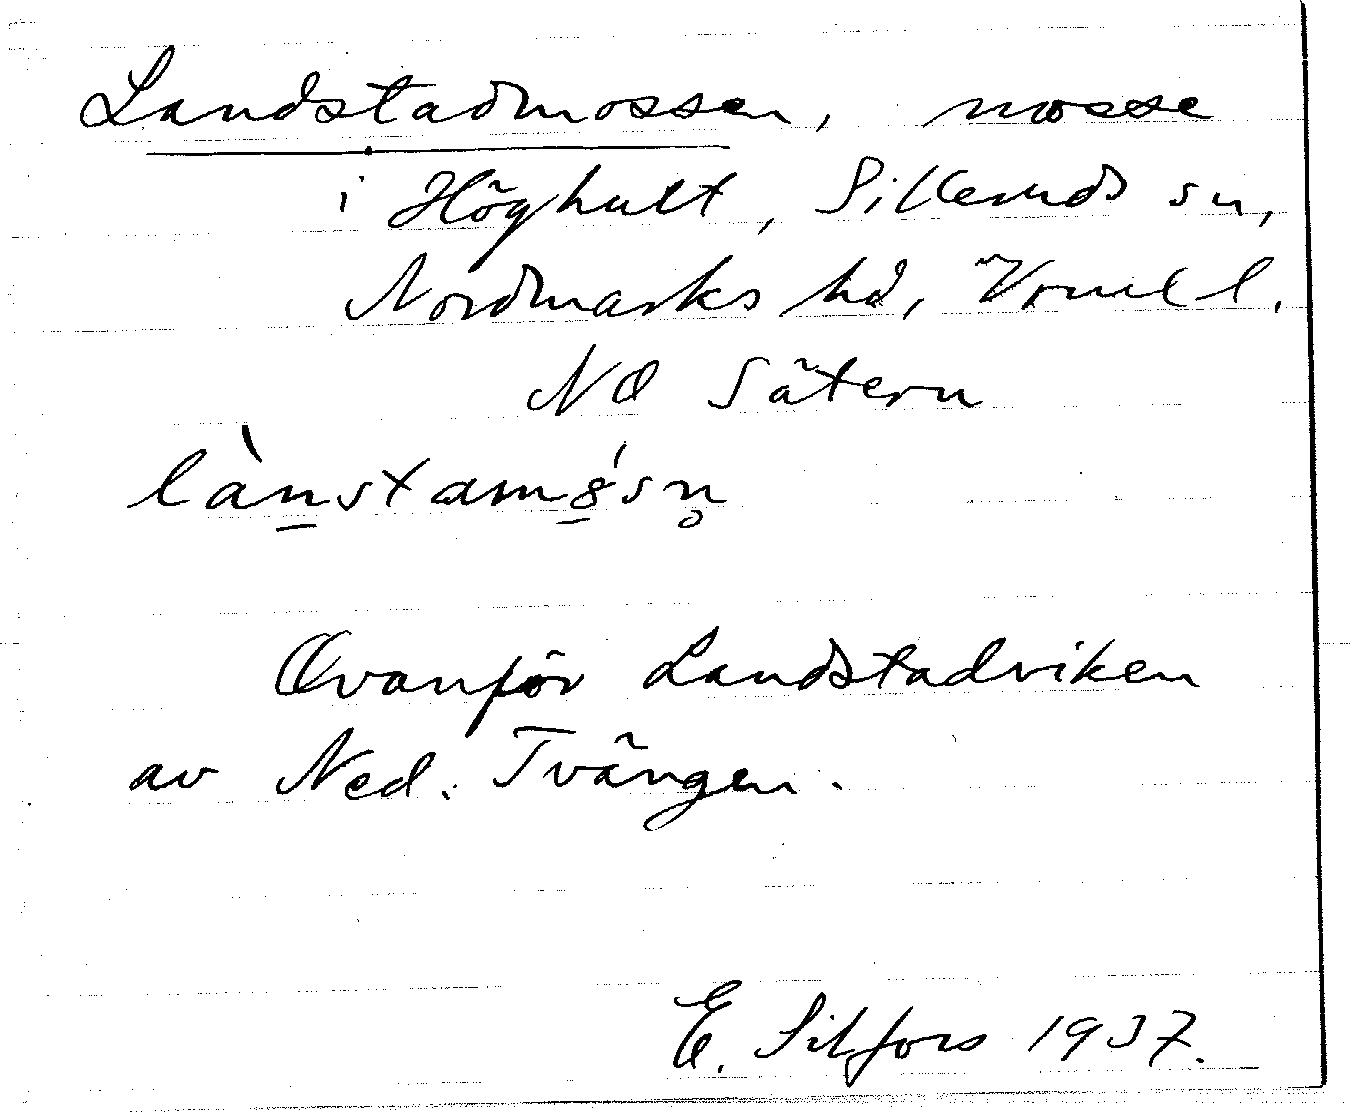 Landstadmossen, mosse
i Höghult, Silleruds sn,
Nordmarks hd, Vrml l.
NO Sätern
Ovanför Landstadviken
av Ned. Tvängen.
E. Silfors 1937.